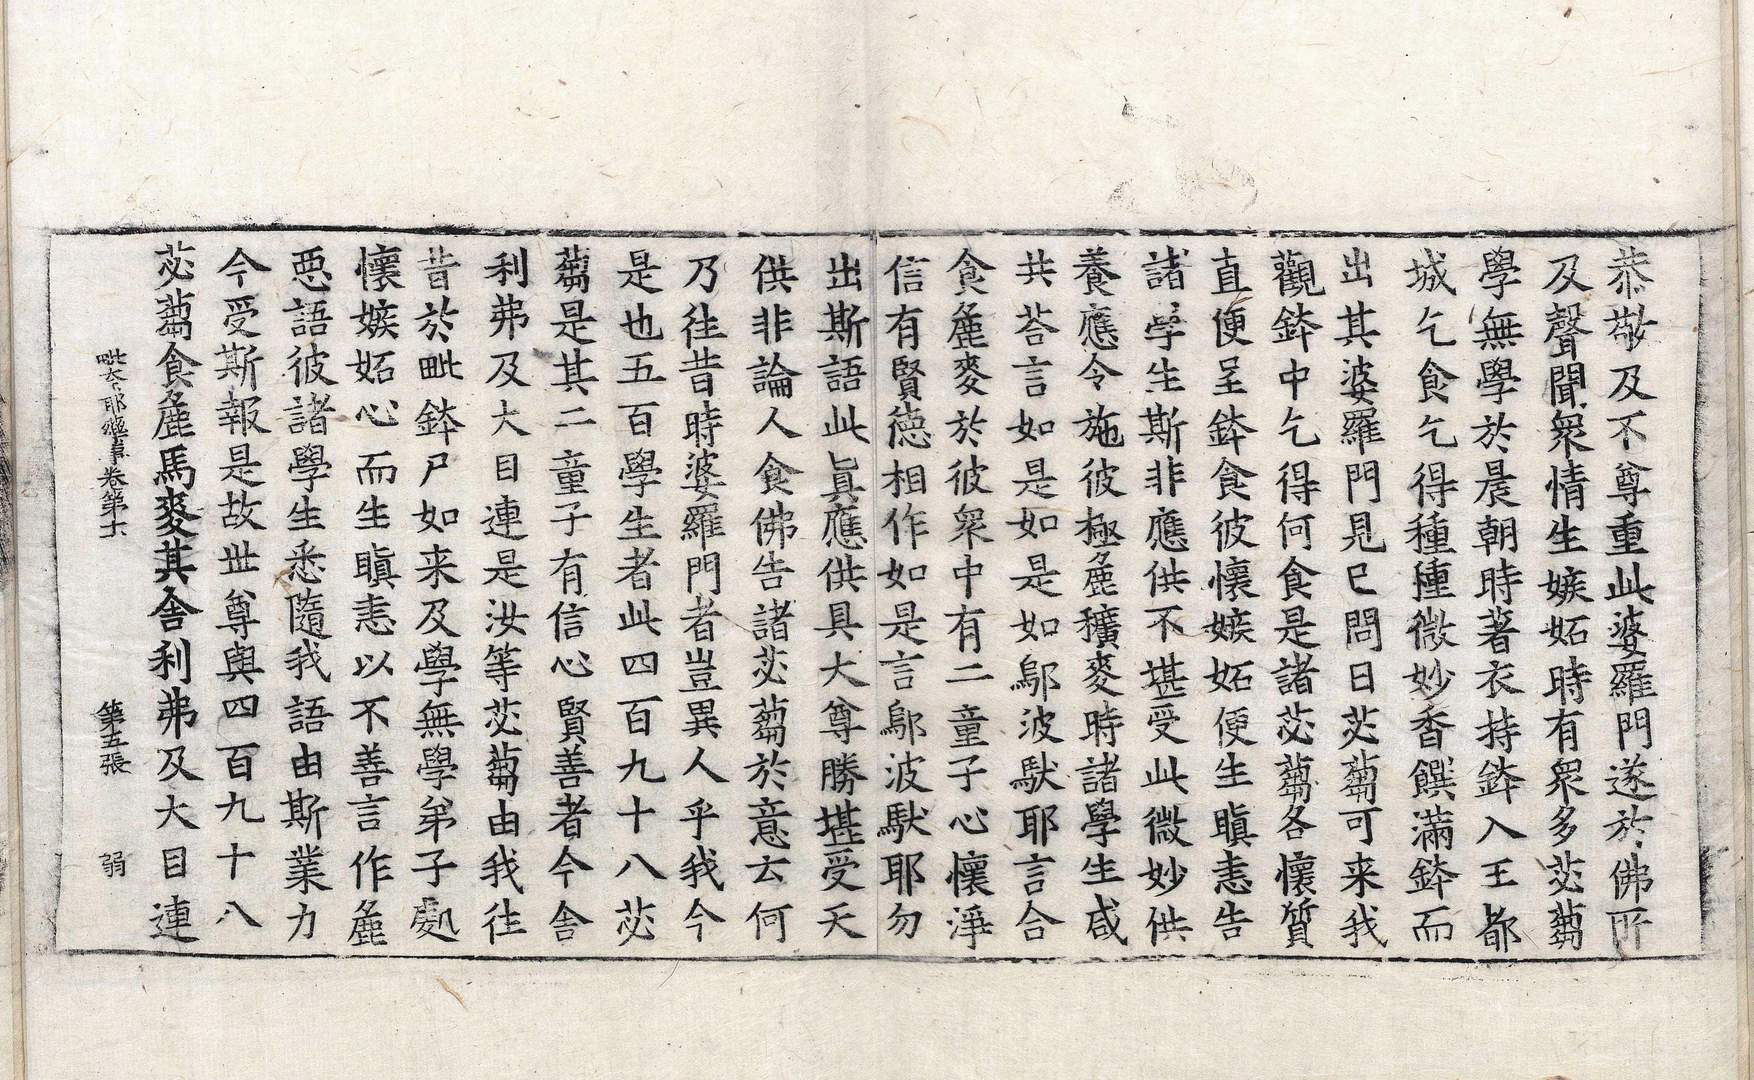 恭敬及不尊重此婆羅門遂於佛所
及聲聞衆情生嫉妬時有衆多苾蒭
學無學於晨朝時著衣持鉢入王都
城乞食乞得種種微妙香饌滿鉢而
出其婆羅門見已問曰苾蒭可来我
觀鉢中乞得何食是諸苾蒭各懷質
直便呈鉢食彼懷嫉妬便生瞋恚告
諸學生斯非應供不堪受此微妙供
養應令施彼極麁穬麥時諸學生咸
共荅言如是如是如鄔波馱耶言合
食麁麥於彼衆中有二童子心懷淨
信有賢德相作如是言鄔波馱耶勿
出斯語此眞應供具大尊勝堪受天
供非論人食佛告諸苾蒭於意云何
乃徃昔時婆羅門者豈異人乎我今
是也五百學生者此四百九十八苾
蒭是其二童子有信心賢善者今舍
利弗及大目連是汝等苾蒭由我徃
昔於毗鉢尸如来及學無學弟子處
懷嫉妬心而生瞋恚以不善言作麁
惡語彼諸學生悉隨我語由斯業力
今受斯報是故世尊與四百九十八
苾蒭食麁馬麥其舍利弗及大目連
毗奈耶藥事卷第十八 第五張 弱